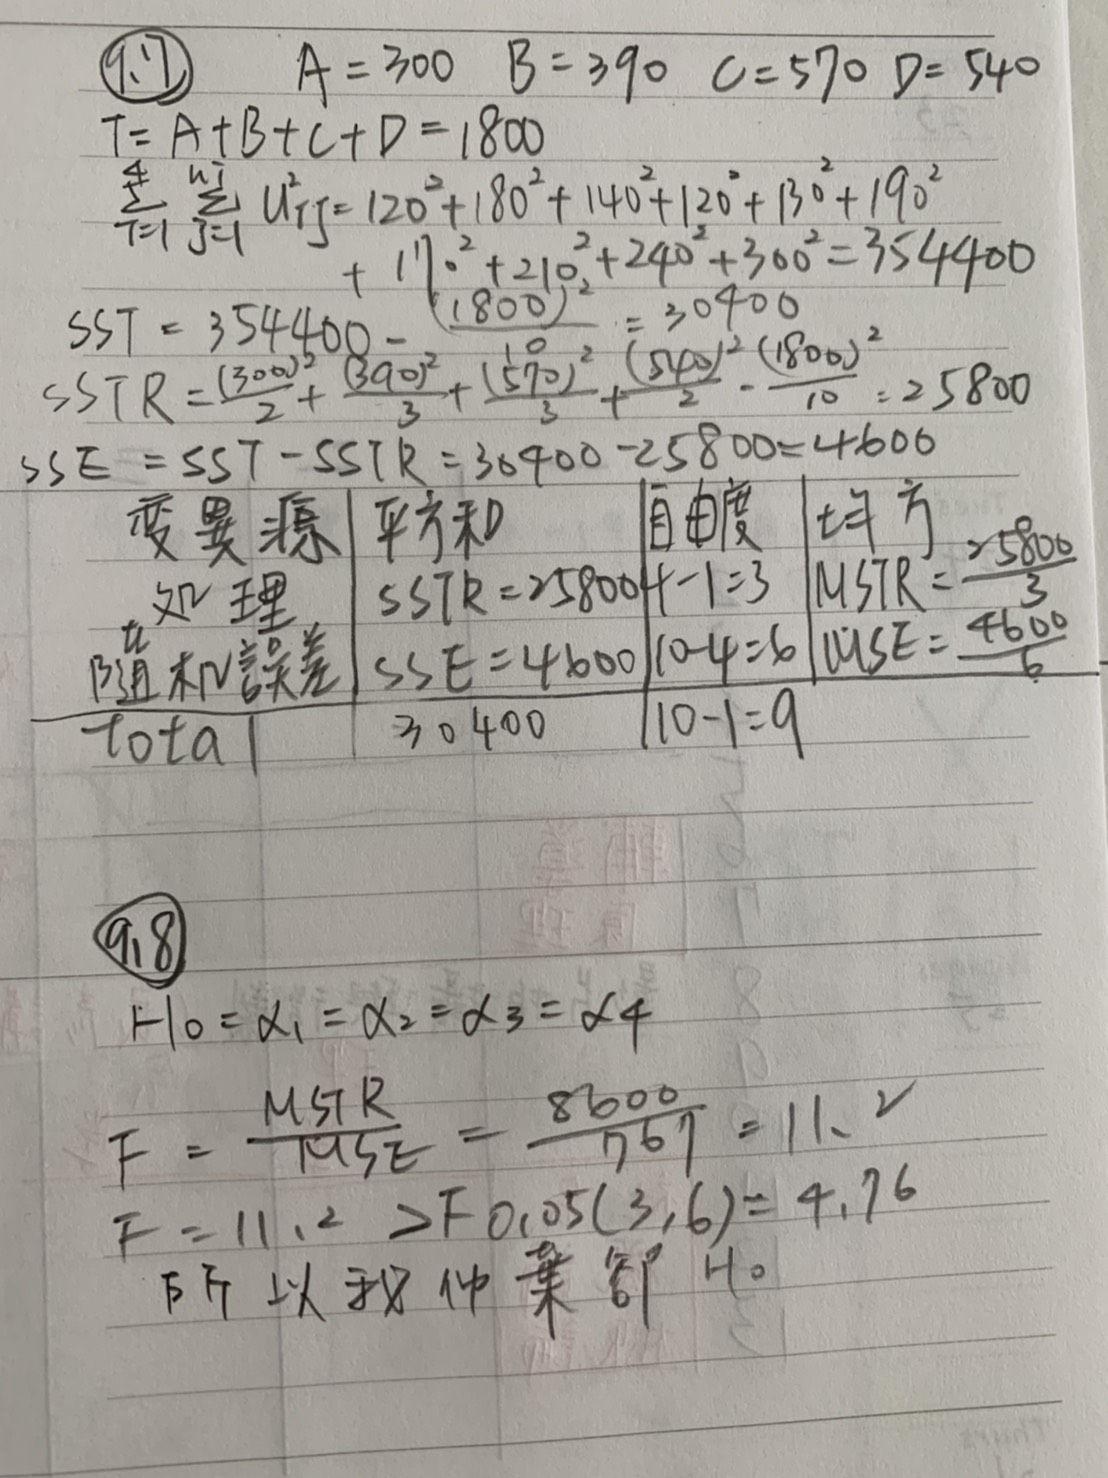 9.7 A=300 B=390 C=570 D=540
T=A+B+C+D=1800
4 nj
Σ Σ U²ij=120²+180²+140²+120²+130²+190²
i=1 j=1
+170²+210²+240²+300²=354400
SST=354400-(1800)²/10=30400
SSTR=(300)²/2+(390)²/3+(570)²/3+(540)²/2-(1800)²/10=25800
SSE=SST-SSTR=30400-25800=4600
变異源 平方和 自由度 均方
処理 SSTR=25800 4-1=3 MSTR=25800/3
隨机誤差 SSE=4600 10-4=6 MSE=4600/6
total 30400 10-1=9
9.8
H₀=α₁=α₂=α3=α4
F=MSTR/MSE=8600/767=11.2
F=11.2>F0.05(3,6)=4.76
所以我们棄卻H₀